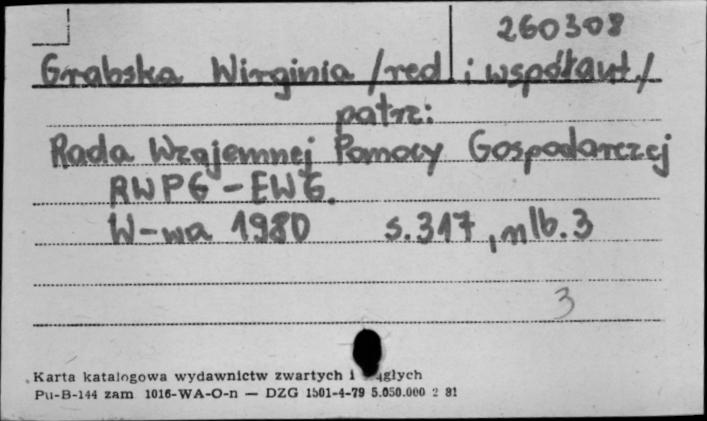 260308
Grabska Wirginia /red i współaut./
patrz:
Rada Wzajemnej Pomocy Gospodarczej
RWPG - EWG.
W-wa 1980 s. 317, nlb. 3
3
Karta katalogowa wydawnictw zwartych i
Pu-B-144 zam. 1016-WA-O-n — DZG 1501-4-79 5.050.000 2 81